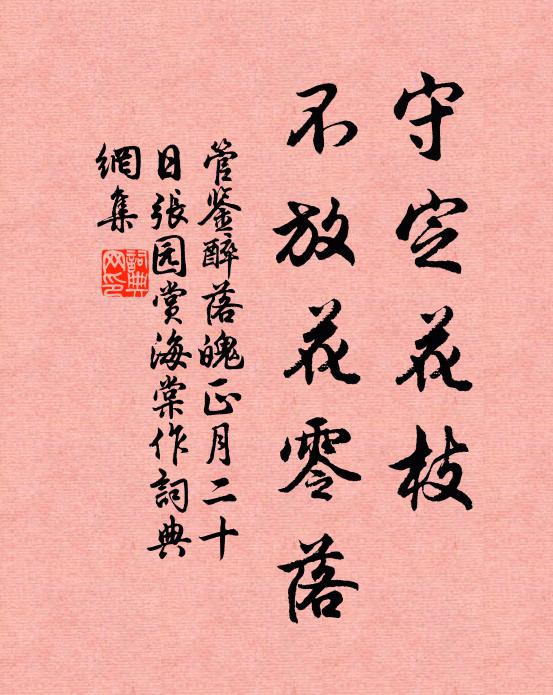 守定花枝
不放花零落
管鉴醉落魄正月二十
日張园赏海棠作詞典
網集
詞典网印